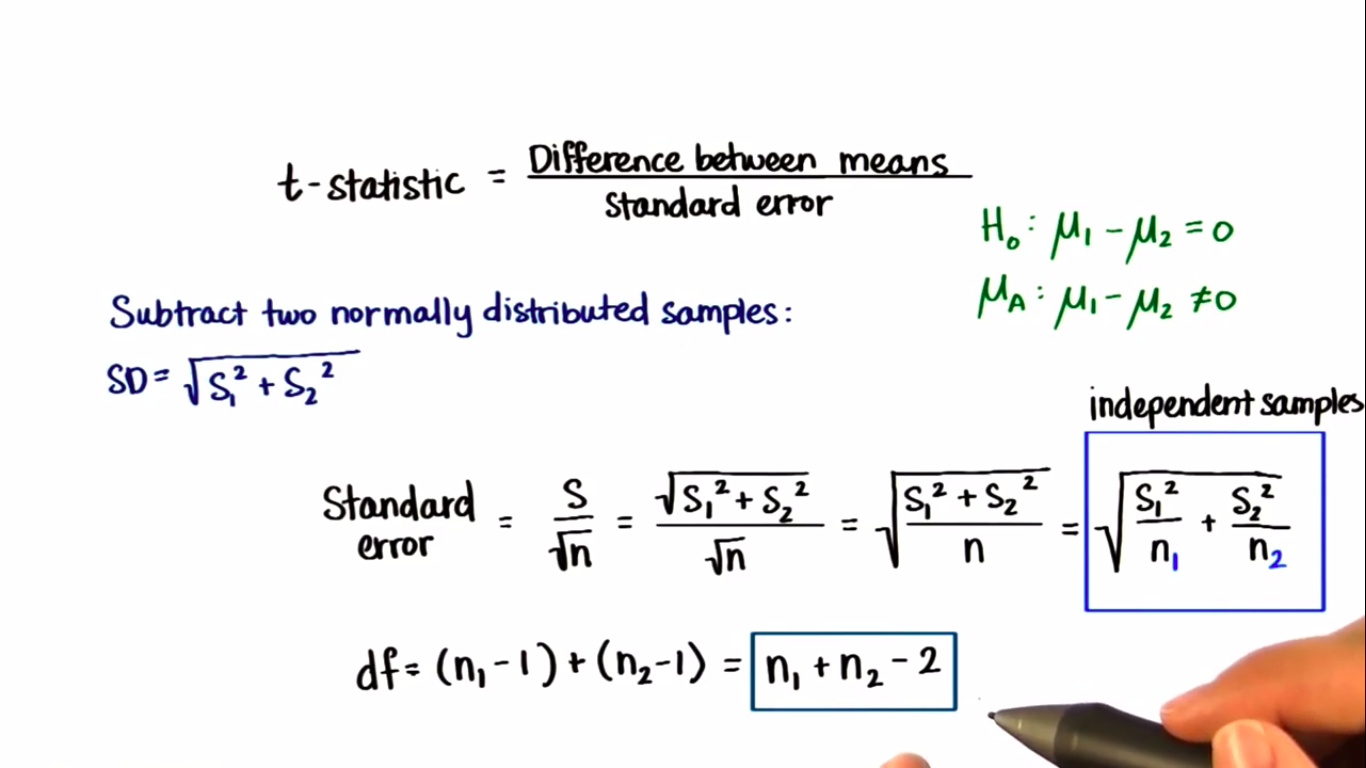 t-statistic = Difference between means / Standard error
H₀: μ₁ - μ₂ = 0
μ_A: μ₁ - μ₂ ≠ 0
Subtract two normally distributed samples:
SD = √(S₁² + S₂²)
independent samples
Standard error = S/√n = √(S₁² + S₂²)/√n = √((S₁² + S₂²)/n) = √(S₁²/n₁ + S₂²/n₂)
df = (n₁ - 1) + (n₂ - 1) = n₁ + n₂ - 2